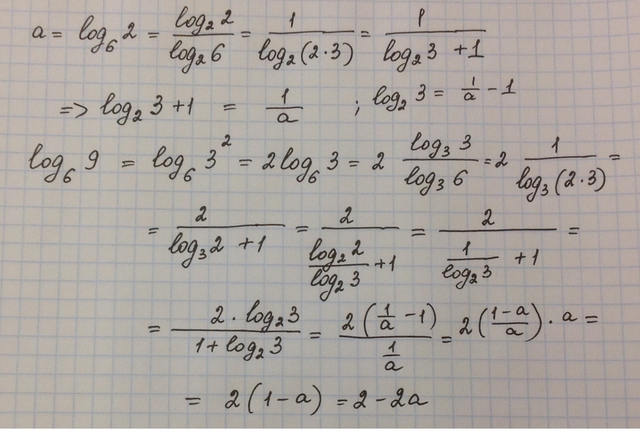 a = log₆ 2 = log₂ 2 / log₂ 6 = 1 / log₂(2·3) = 1 / (log₂ 3 + 1)
=> log₂ 3 + 1 = 1/a ; log₂ 3 = 1/a - 1
log₆ 9 = log₆ 3² = 2 log₆ 3 = 2 log₃ 3 / log₃ 6 = 2 1 / log₃(2·3) =
= 2 / (log₃ 2 + 1) = 2 / (log₂ 2 / log₂ 3 + 1) = 2 / (1 / log₂ 3 + 1) =
= 2 · log₂ 3 / (1 + log₂ 3) = 2(1/a - 1) / (1/a) = 2((1-a)/a) · a =
= 2(1-a) = 2 - 2a